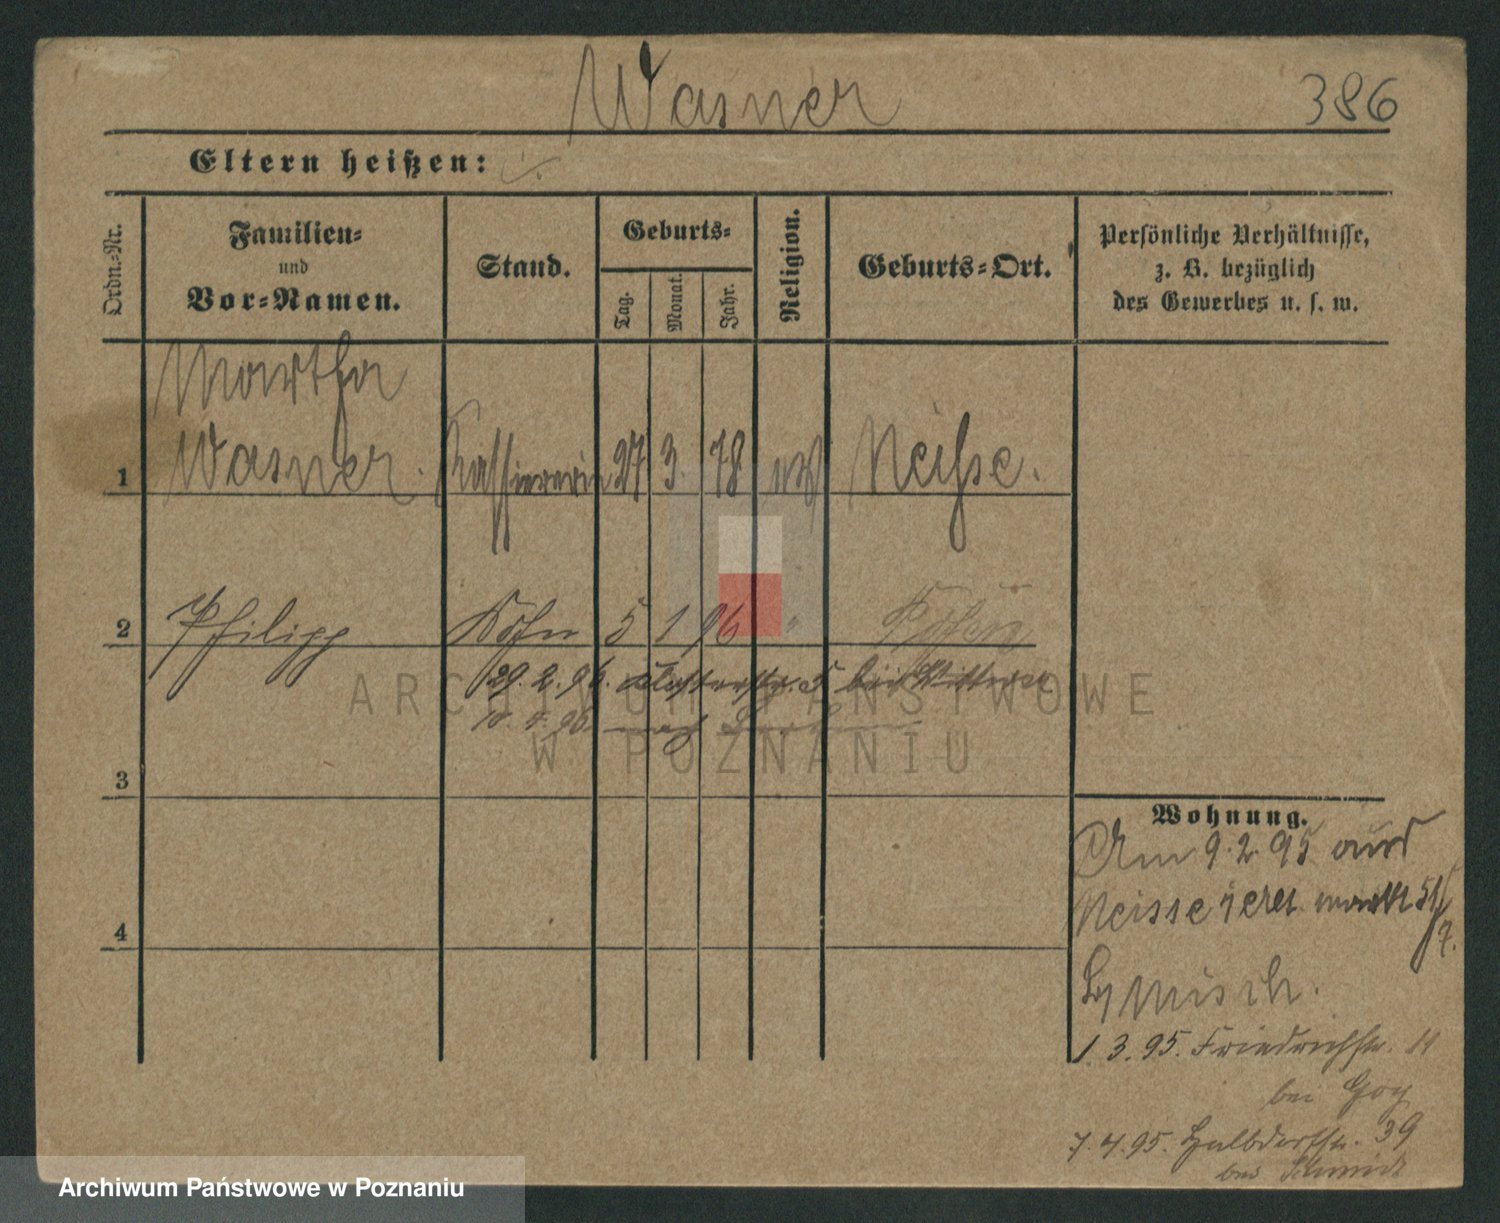 Wasner
386
Eltern heißen: ./.
Ordn.-Nr.
Familien-
und
Vor-Namen.
Stand.
Geburts-
Tag.
Monat.
Jahr.
Religion.
Geburts-Ort.
Persönliche Verhältnisse,
z. B. bezüglich
des Gewerbes u. s. w.
Martha
1 Wasner. Kassiererin 27 3. 78 Neisse.
2 Philipp Sohn 5 1 96 " Posen
29. 2. 96. bei
10. 4. 96 nach
3
4
Wohnung.
Am 9. 2. 95 aus
Neisse markt 51
7.
by Misch.
1. 3. 95. Friedrichstr. 11
bei Goy
7. 4. 95. Halbdorfstr. 39
bei Schmidt
ARCHIWUM PAŃSTWOWE
W POZNANIU
Archiwum Państwowe w Poznaniu